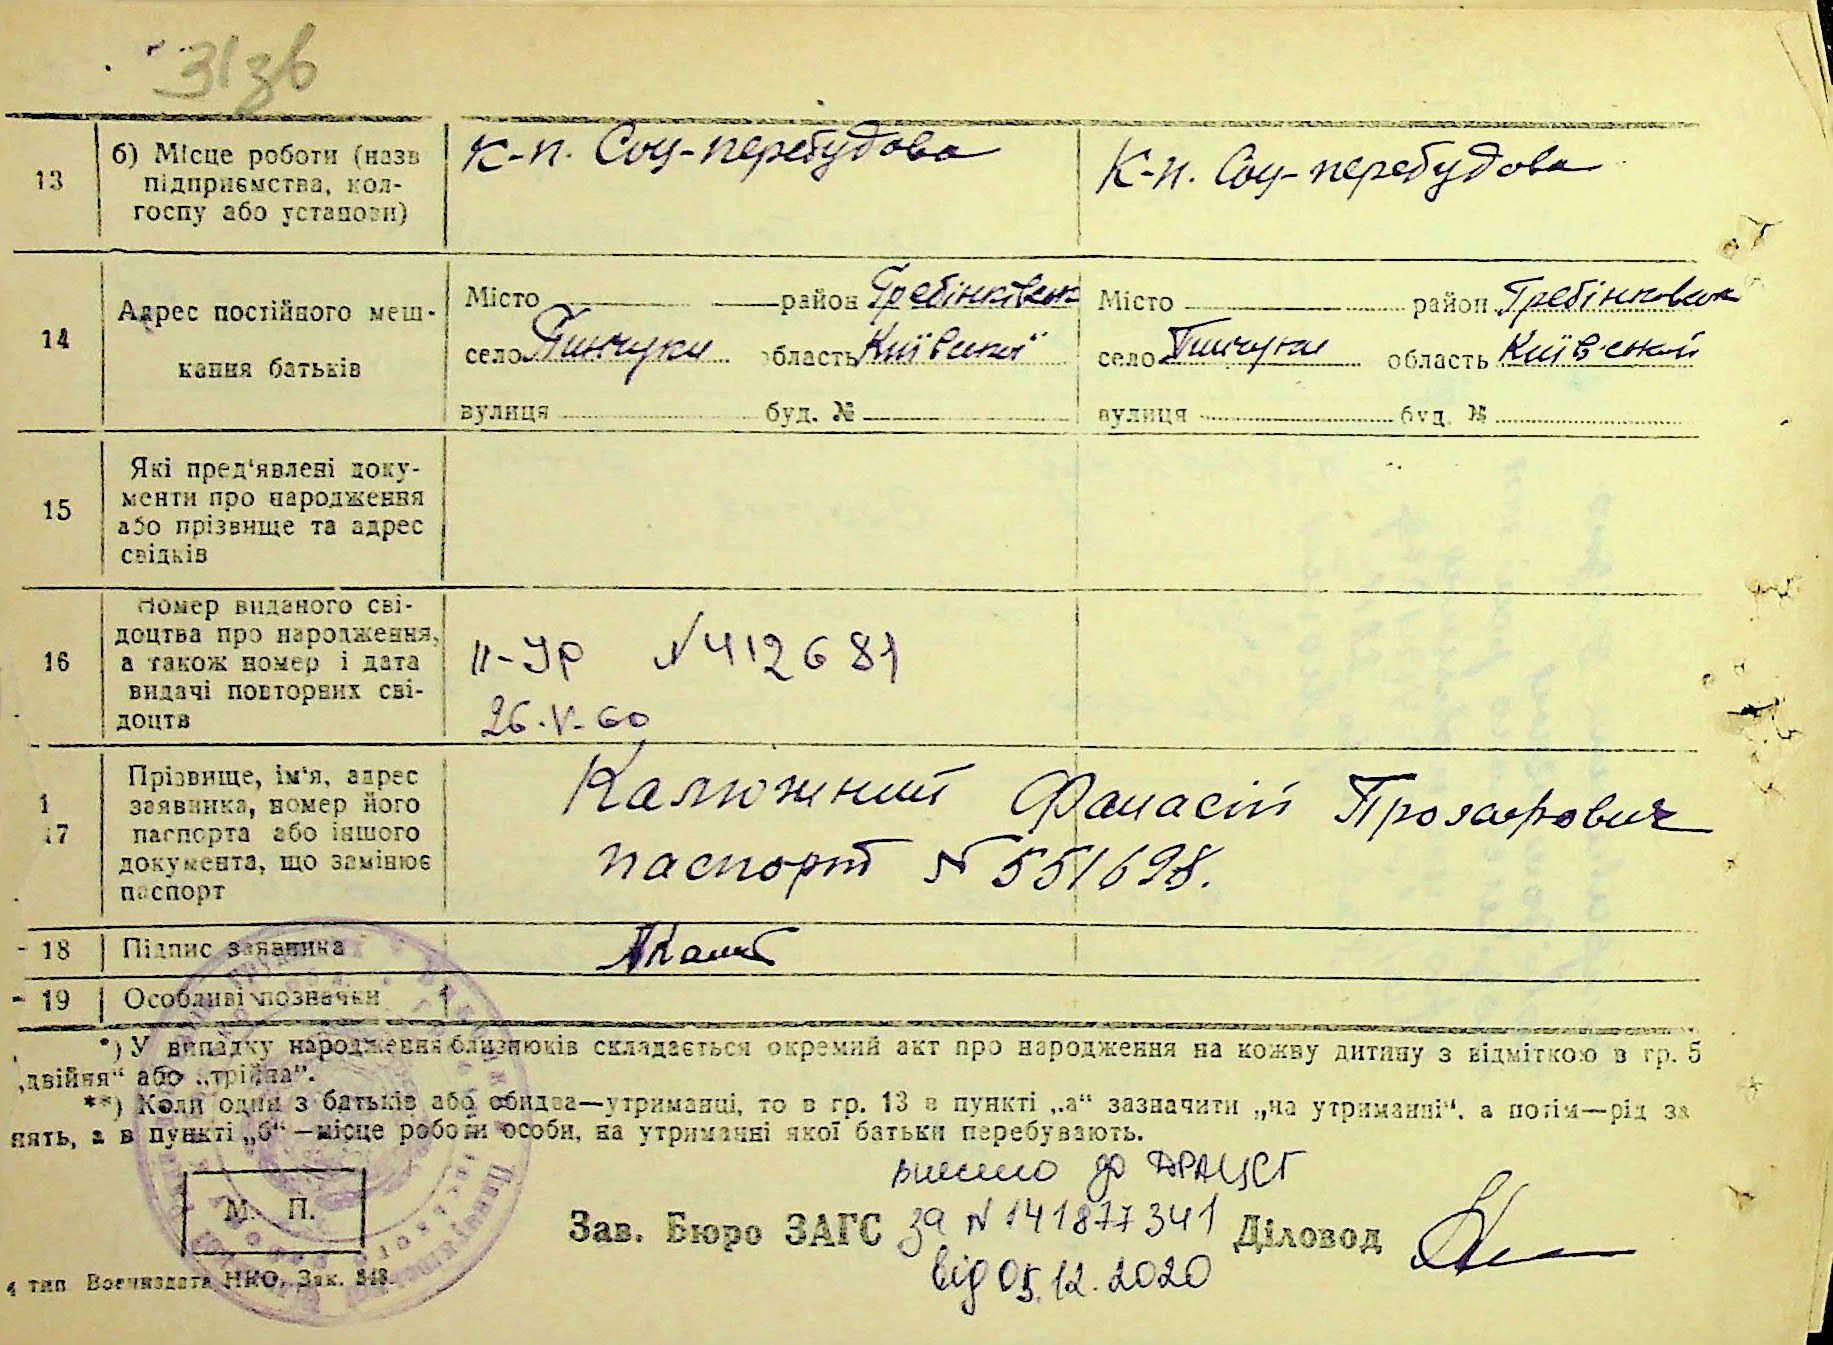 31зв
13
б) Місце роботи (назв
підприємства, кол-
госпу або установи)
К-п. Соц-перебудова
К-п. Соц-перебудова
14
Адрес постійного меш-
кання батьків
Місто район Гребінківськ
село Пінчуки область Київської
вулиця буд. №
Місто район Гребінковськ
село Пінчуки область Київської
вулиця буд. №
15
Які пред'явлені доку-
менти про народження
або прізвище та адрес
свідків
16
Номер виданого сві-
доцтва про народження,
а також номер і дата
видачі повторних сві-
доцтв
II-УР N 412681
26.V-60
1
17
Прізвище, ім'я, адрес
заявника, номер його
паспорта або іншого
документа, що замінює
паспорт
Калюжний Фанасій
паспорт N 551698.
18
Підпис заявника
19
Особливі позначки
*) У випадку народження близнюків складається окремий акт про народження на кожну дитину з відміткою в гр. 5
„двійня“ або „трійня“.
**) Коли один з батьків або обидва—утриманці, то в гр. 13 в пункті „а“ зазначити „на утриманні“, а потім—рід за
нять, а в пункті „б“—місце роботи особи, на утриманні якої батьки перебувають.
М. П.
внесено до ДРАЦСГ
Зав. Бюро ЗАГС за N 141877341 Діловод
від 05.12.2020
4 тип Воениздата НКО, Зак. 248.